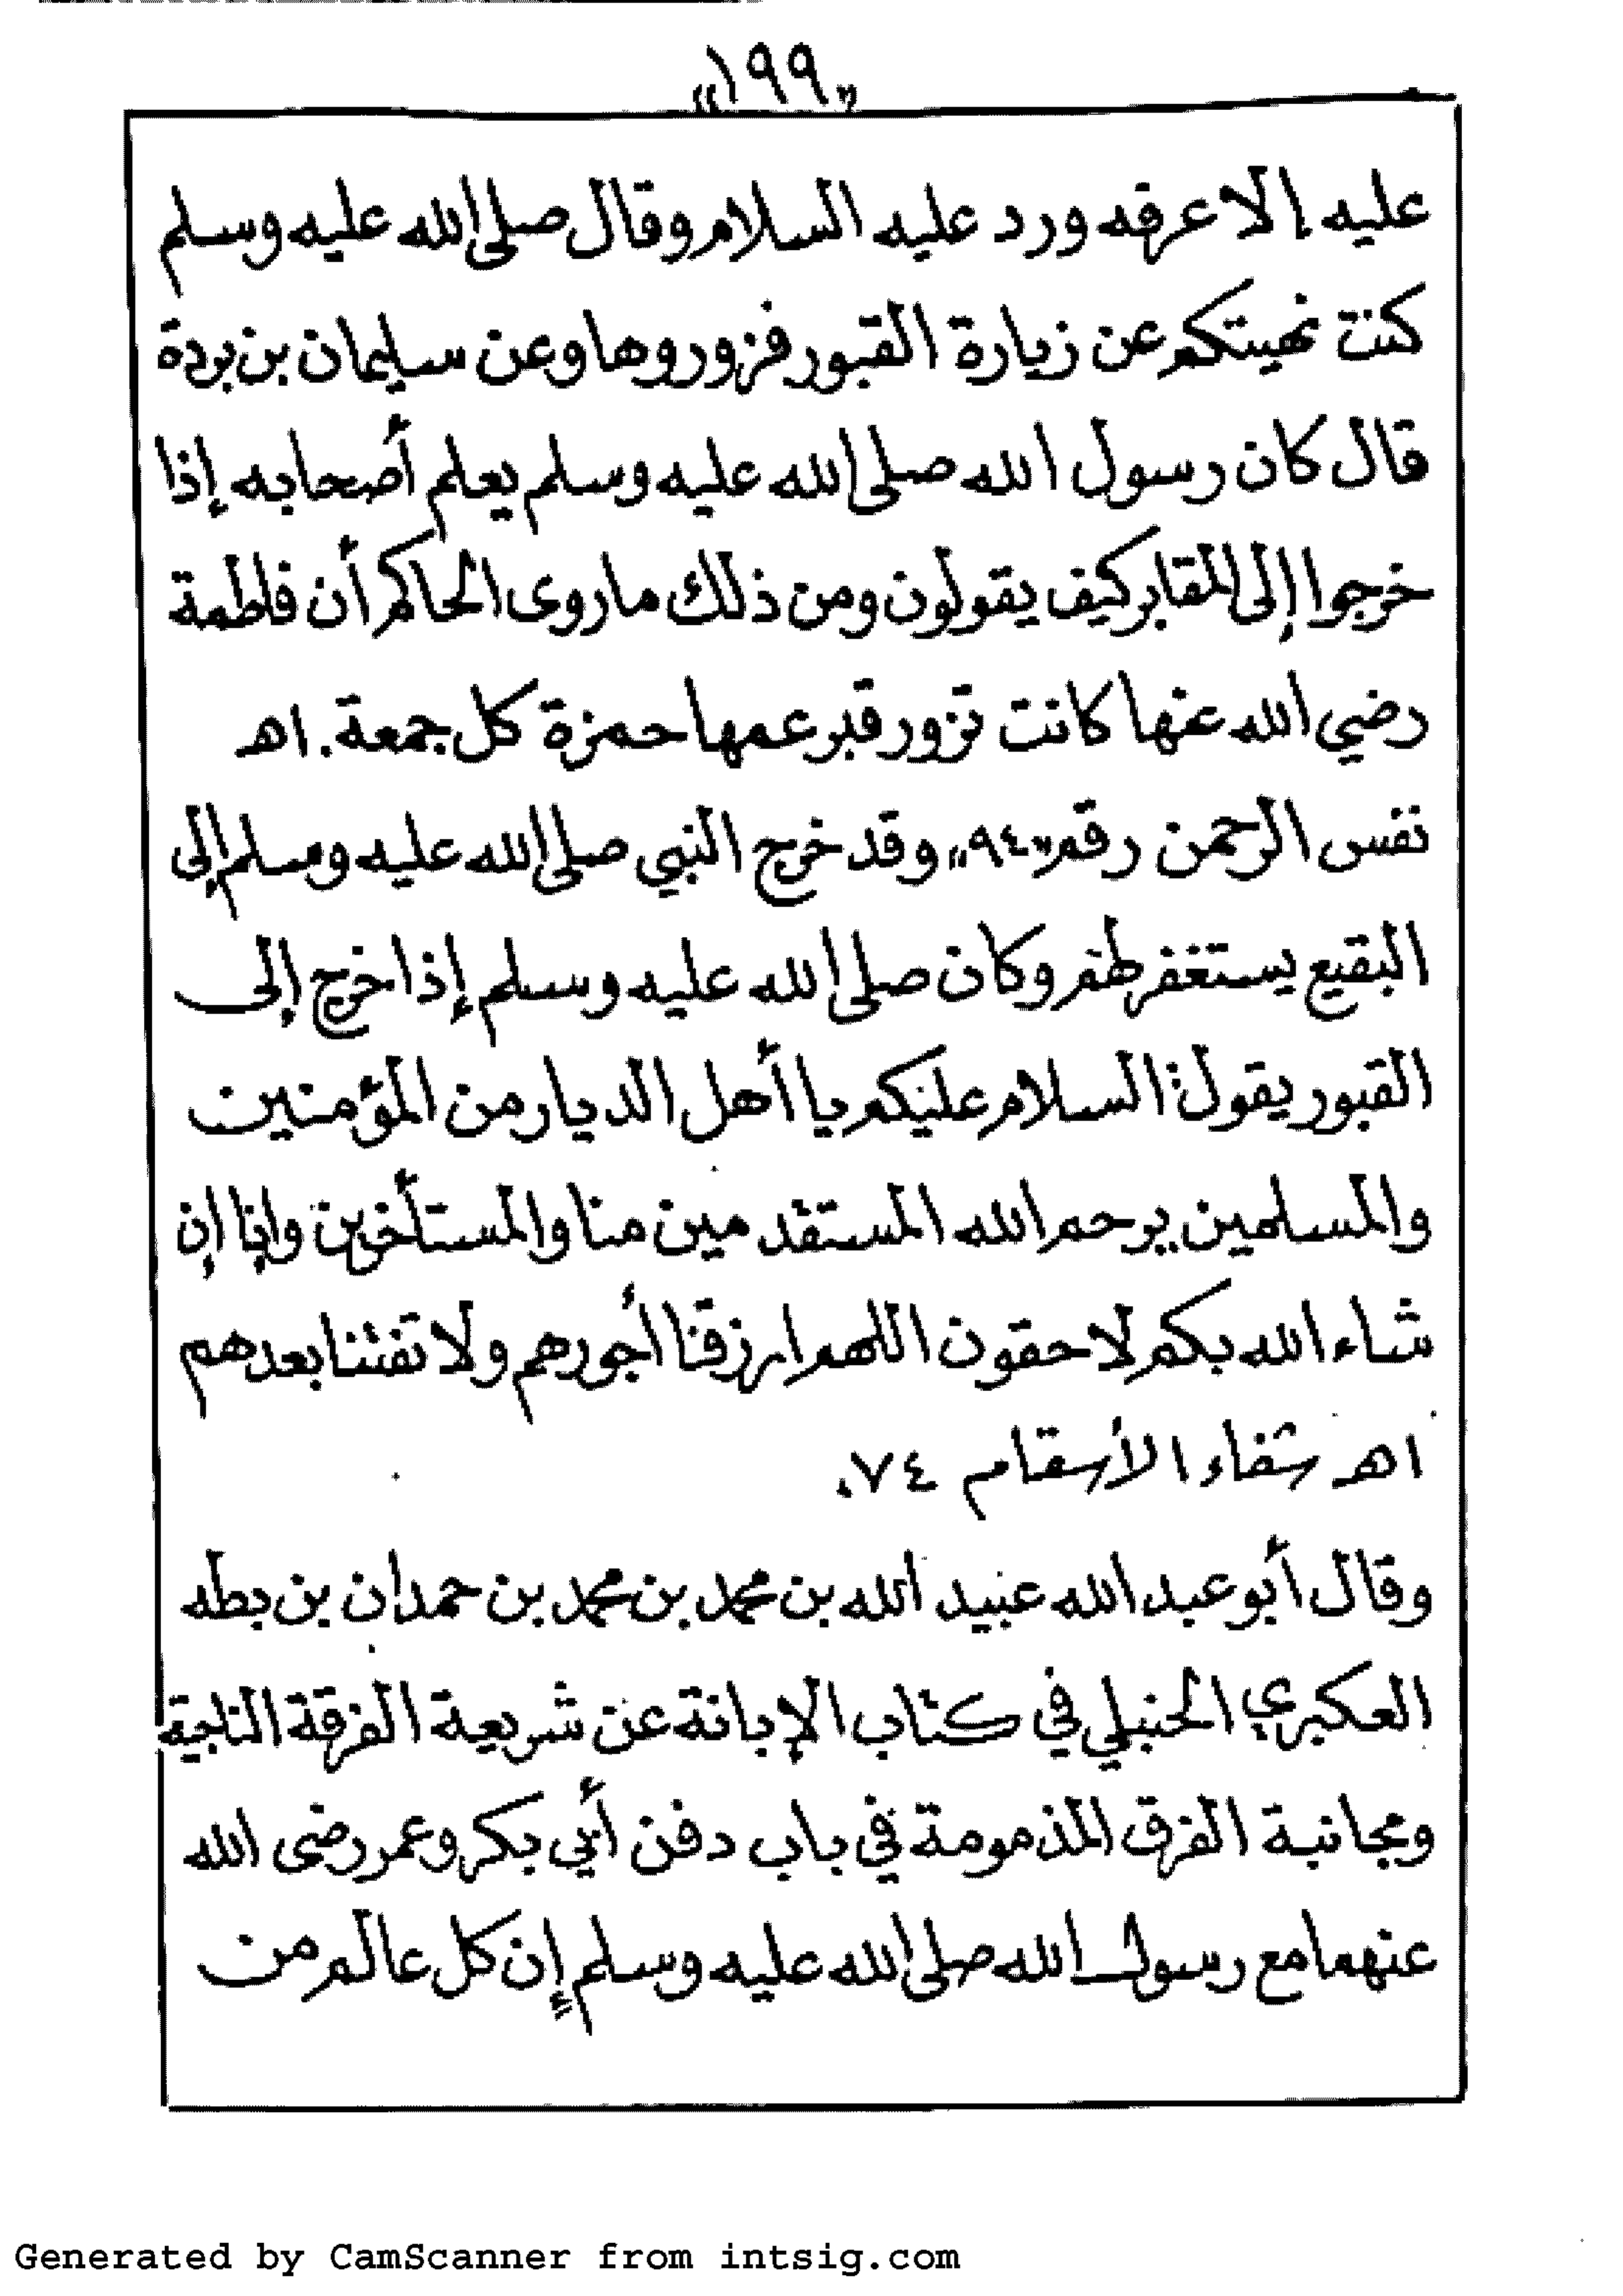 «١٩٩»
عليه إلا عرفه ورد عليه السلام وقال صلى الله عليه وسلم
كنت نهيتكم عن زيارة القبور فزوروها وعن سليمان بن بردة
قال كان رسول الله صلى الله عليه وسلم يعلم أصحابه إذا
خرجوا إلى المقابر كيف يقولون ومن ذلك ما روى الحاكم أن فاطمة
رضي الله عنها كانت تزور قبر عمها حمزة كل جمعة. اهـ
نفس الرحمن رقم «٩٤» وقد خرج النبي صلى الله عليه وسلم إلى
البقيع يستغفر لهم وكان صلى الله عليه وسلم إذا خرج إلى
القبور يقول: السلام عليكم يا أهل الديار من المؤمنين
والمسلمين يرحم الله المستقدمين منا والمستأخرين وإنا إن
شاء الله بكم لاحقون اللهم ارزقنا أجورهم ولا تفتنا بعدهم
اهـ شفاء الأسقام ٧٤.
وقال أبو عبد الله عبيد الله بن محمد بن محمد بن حمدان بن بطه
العكبري الحنبلي في كتاب الإبانة عن شريعة الفرقة الناجية
ومجانبة الفرق المذمومة في باب دفن أبي بكر وعمر رضى الله
عنهما مع رسول الله صلى الله عليه وسلم إن كل عالم من
Generated by CamScanner from intsig.com